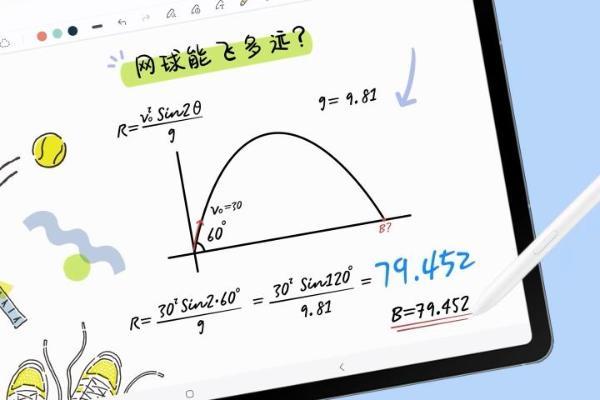 网球能飞多远?
R=v₀² Sin2θ/g
g=9.81
v₀=30
60°
B?
R=30² Sin2·60°/g = 30² Sin120°/9.81 = 79.452
B=79.452